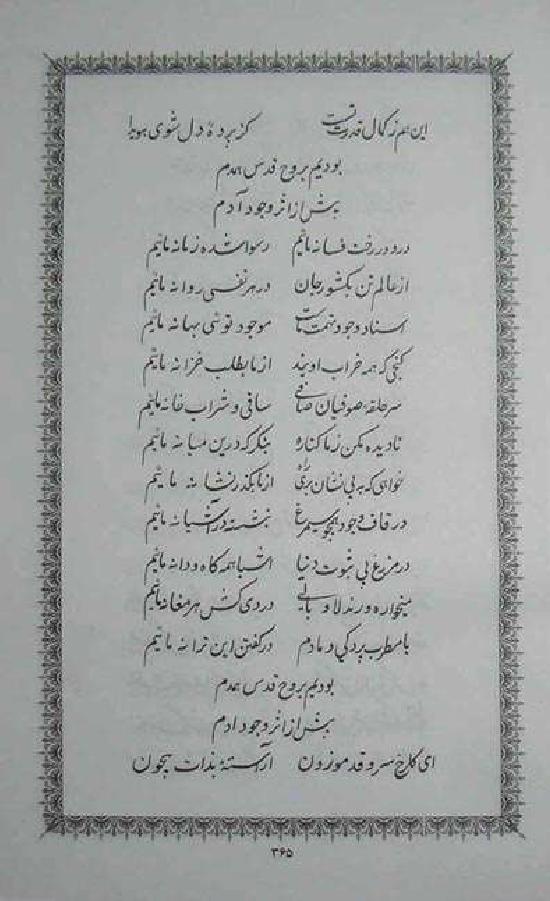 این هم ز کمال قدرت تست کز پرده دل شوی هویدا
بودیم بروح قدس همدم
پیش از اثر وجود آدم
در و در رخت فسانه مائیم رسوا شده زمانه مائیم
از عالم تن بکشور جان در هر نفسی روانه مائیم
اسناد وجود تهمت ماست موجود توئی بهانه مائیم
گنجی که همه خراب اویند از ما بطلب خزانه مائیم
سر حلقه صوفیان صافی ساقی و شراب خانه مائیم
نادیده مکن ز ما کناره بنگر که درین میانه مائیم
خواهی که به بی نشان بری راه از ما بگذر نشانه مائیم
در قاف وجود همچو سیمرغ بنشسته در آشیانه مائیم
در مزرع بی ثبوت دنیا اشیا همه کاه و دانه مائیم
میخواره و رند لاوبالی دردی کش هر مغانه مائیم
با مطرب پردگی دمادم در گفتن این ترانه مائیم
بودیم بروح قدس همدم
پیش از اثر وجود آدم
ای گلرخ سرو قد موزون آراسته بذات بیچون
۳۶۵